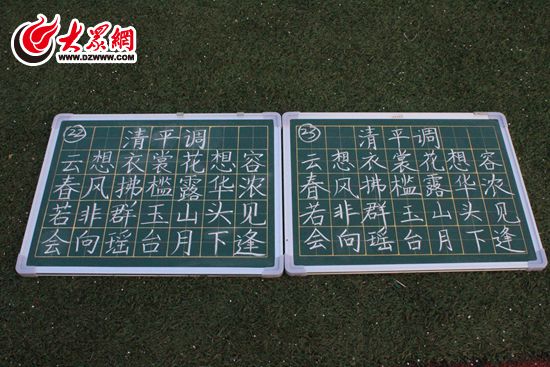 大眾網
WWW.DZWWW.COM
22
清平调
云想衣裳花想容
春风拂槛露华浓
若非群玉山头见
会向瑶台月下逢
23
清平调
云想衣裳花想容
春风拂槛露华浓
若非群玉山头见
会向瑶台月下逢